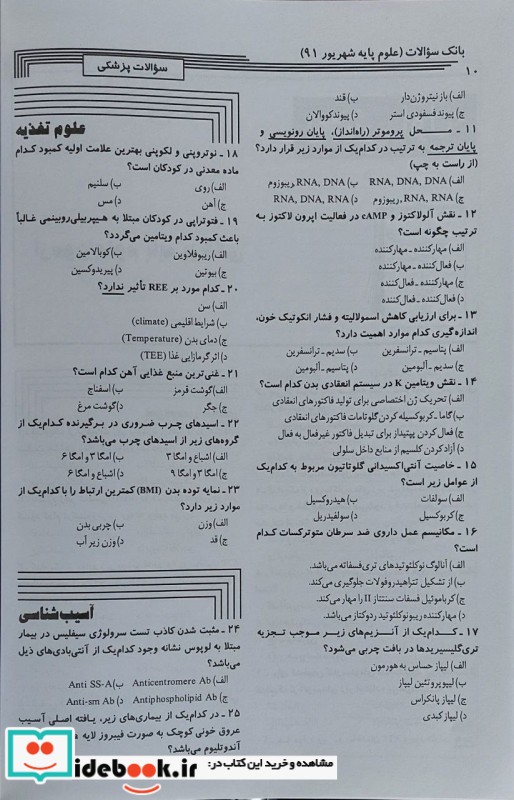 بانک سؤالات (علوم پایه شهریور ۹۱)
سؤالات پزشکی
۱۰
الف) باز نیتروژن‌دار ب) قند
ج) پیوند فسفودی استر د) پیوند کووالان
۱۱ ـ مـــحل پروموتر (راه‌انداز)، پایان رونویسی و
پایان ترجمه به ترتیب در کدام‌یک از موارد زیر قرار دارد؟
(از راست به چپ)
الف) RNA, DNA, DNA ب) RNA, DNA, ریبوزوم
ج) RNA, RNA, ریبوزوم د) RNA, DNA, RNA
۱۲ ـ نقش آلولاکتوز و cAMP در فعالیت اپرون لاکتوز به
ترتیب چگونه است؟
الف) مهارکننده ـ مهارکننده
ب) فعال‌کننده ـ مهارکننده
ج) مهارکننده ـ فعال‌کننده
د) فعال‌کننده ـ فعال‌کننده
۱۳ ـ برای ارزیابی کاهش اسمولالیته و فشار انکوتیک خون،
اندازه‌گیری کدام موارد اهمیت دارد؟
الف) پتاسیم ـ ترانسفرین ب) سدیم ـ ترانسفرین
ج) سدیم ـ آلبومین د) پتاسیم ـ آلبومین
۱۴ ـ نقش ویتامین K در سیستم انعقادی بدن کدام است؟
الف) تحریک ژن اختصاصی برای تولید فاکتورهای انعقادی
ب) گاما ـ کربوکسیله کردن گلوتامات فاکتورهای انعقادی
ج) فعال کردن پپتیداز برای تبدیل فاکتور غیرفعال به فعال
د) آزاد کردن کلسیم از منابع داخل سلولی
۱۵ ـ خاصیت آنتی‌اکسیدانی گلوتاتیون مربوط به کدام‌یک
از عوامل زیر است؟
الف) سولفات ب) هیدروکسیل
ج) کربوکسیل د) سولفیدریل
۱۶ ـ مکانیسم عمل داروی ضد سرطان متوترکسات کدام
است؟
الف) آنالوگ نوکلئوتیدهای تری‌فسفاته می‌باشد.
ب) از تشکیل تتراهیدروفولات جلوگیری می‌کند.
ج) کرباموئیل فسفات سنتتاز II را مهار می‌کند.
د) مهارکننده ریبونوکلئوتید ردوکتاز می‌باشد.
۱۷ ـ کـــدام‌یک از آنزیم‌های زیـر مـوجب تجزیه
تری‌گلیسریدها در بافت چربی می‌شود؟
الف) لیپاز حساس به هورمون
ب) لیپوپروتئین لیپاز
ج) لیپاز پانکراس
د) لیپاز کبدی
علوم تغذیه
۱۸ ـ نوتروپنی و لکوپنی بهترین علامت اولیه کمبود کدام
ماده معدنی در کودکان است؟
الف) روی ب) سلنیم
ج) آهن د) مس
۱۹ ـ فتوتراپی در کودکان مبتلا به هیپربیلی‌روبینمی غالباً
باعث کمبود کدام ویتامین می‌گردد؟
الف) ریبوفلاوین ب) کوبالامین
ج) بیوتین د) پیریدوکسین
۲۰ ـ کدام مورد بر REE تأثیر ندارد؟
الف) سن
ب) شرایط اقلیمی (climate)
ج) دمای بدن (Temperature)
د) اثر گرمازایی غذا (TEE)
۲۱ ـ غنی‌ترین منبع غذایی آهن کدام است؟
الف) گوشت قرمز ب) اسفناج
ج) جگر د) گوشت مرغ
۲۲ ـ اسیدهای چرب ضروری در برگیرنده کدام‌یک از
گروه‌های زیر از اسیدهای چرب می‌باشد؟
الف) اشباع و امگا ۳ ب) امگا ۳ و امگا ۶
ج) امگا ۳ و امگا ۹ د) اشباع و امگا ۶
۲۳ ـ نمایه توده بدن (BMI) کمترین ارتباط را با کدام‌یک از
موارد زیر دارد؟
الف) وزن ب) چربی بدن
ج) قد د) وزن زیر آب
آسیب‌شناسی
۲۴ ـ مثبت شدن کاذب تست سرولوژی سیفلیس در بیمار
مبتلا به لوپوس نشانه وجود کدام‌یک از آنتی‌بادی‌های ذیل
می‌باشد؟
الف) Anticentromere Ab ب) Anti SS-A
ج) Antiphospholipid Ab د) Anti-sm Ab
۲۵ ـ در کدام‌یک از بیماری‌های زیر، یافته اصلی آسیب
عروق خونی کوچک به صورت فیبروز لایه
آندوتلیوم می‌باشد؟
مشاهده و خرید این کتاب در:
idebook.ir